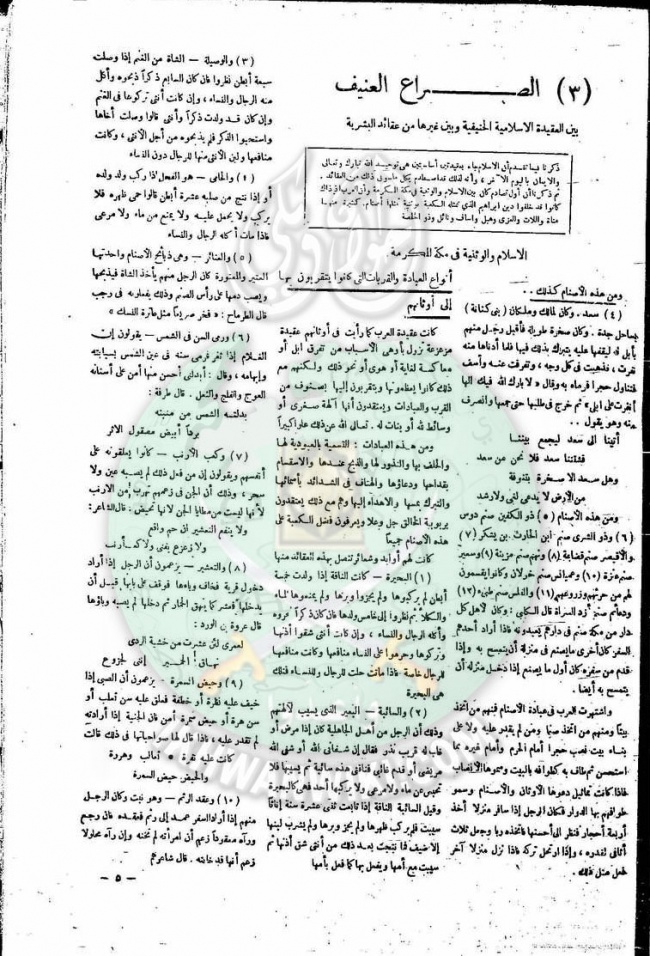 (٣) الصراع العنيف
بين العقيدة الاسلامية الحنيفية وبين غيرها من عقائد البشرية
ذكرنا فيما تقدم أن الاسلام جاء بعقيدتين أساسيتين هى توحيد الله تبارك وتعالى
والايمان باليوم الآخر ، وأنه لذلك تصادم بكل ذلك من العقائد .
ثم ذكرنا أن أول تصادم كان بين الاسلام والوثنية فى مكة المكرمة وأن العرب
كانوا قد خلفوا دين ابراهيم الذى تمثله الكعبة بوثنية تمثلها أصنام كثيرة منها
مناة واللات والعزى وهبل واساف ونائل وذو الخلصة
الاسلام والوثنية فى مكة المكرمة
ومن هذه الأصنام كذلك ..
(٤) سعد . وكان لمالك وملكان ( بنى كنانة )
بساحل جدة . وكان صخرة طويلة فأقبل رجل منهم
بأبل له ليقفها عليه يتبرك بذلك فيها فلما أدناها منه
نفرت ، فذهبت فى كل وجه ، وتفرقت عنه وأسف
فتناول حجرا فرماه به وقال « لا بارك الله فيك الها
أنفرت على ابلى » ثم خرج فى طلبها حتى جمعها وانصرف
عنه وهو يقول ..
أتينا الى سعد ليجمع بيننا
فشتتنا سعد فلا نحن من سعد
وهل سعد الا صخرة بتنوفة
من الأرض لا يدعى لغى ولا رشد
ومن هذه الأصنام (٥) ذو الكفين صنم دوس
(٦) وذو الشرى صنم ابن الحارث بن يشكر (٧)
والأقيصر صنم قضاعة (٨) ونهم صنم مزينة (٩) وسعير
صنم عنزة (١٠) وعميانس صنم خولان وكانوا يقسمون
لهم من حرثهم وزروعهم (١١) والفلس صنم طىء (١٢)
صنم أزد السراة قال الكلبى : وكان لأهل كل
دار من مكة صنم فى دارهم يعبدونه فاذا أراد أحدهم
السفر كان آخر ما يصنع فى منزله أن يتمسح به واذا
قدم من سفره كان أول ما يصنع اذا دخل منزله أن
يتمسح به أيضا .
واشتهرت العرب فى عبادة الأصنام فمنهم من اتخذ
بيتا ومنهم من اتخذ صنما ومن لم يقدر عليه ولا على
بناء بيت نصب حجرا أمام الحرم وأمام غيره مما
استحسن ثم طاف به كطوافه بالبيت وسموها الأنصاب
فاذا كانت تماثيل دعوها الأوثان والأصنام وسموا
طوافهم بها الدوار فكان الرجل إذا سافر منزلا أخذ
أربعة أحجار فنظر الى أحسنها فاتخذه ربا وجعل ثلاث
أثافى لقدره ، واذا ارتحل تركه فاذا نزل منزلا آخر
فعل مثل ذلك .
أنواع العبادة والقربات التى كانوا يتقربون بها
إلى أوثانهم
كانت عقيدة العرب كما رأيت فى أوثانهم عقيدة
مزعزعة تزول بأوهى الأسباب من تفرق ابل أو
معاكسة لغاية أو هوى أو نحو ذلك ولكنهم مع
ذلك كانوا يعظمونها ويتقربون إليها بصنوف من
القرب والعبادات ويعتقدون أنها آلهة صغرى أو
وسائط لله أو بنات له . تعالى الله عن ذلك علوا كبيرا
ومن هذه العبادات : التسمية بالعبودية لها
والحلف بها والنذور لها والذبح عندها والاقسام
بقداحها ودعاؤها والهتاف فى الشدائد بأسمائها
والتبرك بمسها والاهداء إليها وهم مع ذلك يعتقدون
بربوبية الخالق جل وعلا ويعرفون فضل الكعبة على
هذه الأصنام جميعا
كانت لهم أوابد وشعائر تتصل بهذه العقائد منها
(١) البحيرة – كانت الناقة إذا ولدت خمسة
أبطن لم يركبوها ولم يجزوا وبرها ولم يمنعوها الماء
والكلأ ثم نظروا إلى خامس ولدها فان كان ذكرا نحروه
وأكله الرجال والنساء ، وإن كانت أنثى شقوا أذنها
وتركوها وحرموا على النساء منافعها وكانت منافعها
للرجال خاصة فاذا ماتت حلت للرجال وللنساء فتلك
هى البحيرة
(٢) والسائبة – البعير الذى يسيب لآلهتهم
وذلك أن الرجل من أهل الجاهلية كان إذا مرض أو
غاب له قريب نذر فقال إن شفانى الله أو شفى الله
مريضى أو قدم غائبى فناقتى هذه سائبة ثم يسيبها فلا
تحبس عن ماء ولا مرعى ولا يركبها أحد فهى كالبحيرة
وقيل السائبة الناقة إذا تابعت ثنتى عشرة سنة إناثا
سيبت فلم يركب ظهرها ولم يجز وبرها ولم يشرب لبنها
إلا ضيف فما نتجت بعد ذلك من أنثى شق أذنها ثم
سيبت مع أمها ويفعل بها كما فعل بأمها
(٣) والوصيلة – الشاة من الغنم إذا وصلت
سبعة أبطن نظروا فان كان السابع ذكرا ذبحوه وأكل
منه الرجال والنساء ، وإن كانت أنثى تركوها فى الغنم
وإن كان قد ولدت ذكرا وأنثى قالوا وصلت أخاها
واستحيوا الذكر فلم يذبحوه من أجل الأنثى ، وكانت
منافعها ولبن الأنثى منها للرجال دون النساء
(٤) والحامى – هو الفحل إذا ركب ولد ولده
أو إذا نتج من صلبه عشرة أبطن قالوا حمى ظهره فلا
يركب ولا يحمل عليه ولا يمنع من ماء ولا مرعى
فاذا مات أكله الرجال والنساء
(٥) والعتائر – وهى ذبائح الأصنام واحدتها
العتيرة والمعتورة كان الرجل منهم يأخذ الشاة فيذبحها
ويصب دمها على رأس الصنم وذلك يفعلونه فى رجب
قال الطرماح : « فخر صريعا مثل عاترة النسك »
(٦) ورمى السن فى الشمس – يقولون إن
الغلام إذا ثغر فرمى سنه فى عين الشمس بسبابته
وإبهامه ، وقال : أبدلنى أحسن منها أمن على أسنانه
العوج والفلج والثعل . قال طرفة :
بدلته الشمس من منبته
بردا أبيض مصقول الأشر
(٧) وكعب الأرنب – كانوا يعلقونه على
أنفسهم ويقولون إن من فعل ذلك لم يصبه عين ولا
سحر ، وذلك أن الجن فى زعمهم تهرب من الأرنب
لأنها ليست من مطايا الجن لأنها تحيض . قال الشاعر :
ولا ينفع التعشير ان حم واقع
ولا زعزع يغنى ولا كعب أرنب
(٨) والتعشير – يزعمون أن الرجل إذا أراد
دخول قرية فخاف وباءها فوقف على بابها قبل أن
يدخلها فعشر كما ينهق الحمار ثم دخلها لم يصبه وباؤها
قال عروة بن الورد :
لعمرى لئن عشرت من خشية الردى
نهاق الحمير إننى لجزوع
(٩) وحيض السمرة – يزعمون أن الصبى إذا
خيف عليه نظرة أو خطفة فعلق عليه سن ثعلب أو
سن هرة أو حيض سمرة أمن فان الجنية إذا أرادته
لم تقدر عليه ، فاذا قال لها صواحباتها فى ذلك قالت
كانت عليه نفرة ثعالب وهررة
والحيض حيض السمرة
(١٠) وعقد الرتم – وهو نبت وكان الرجل
منهم إذا أراد السفر عمد إلى رتم فعقده فان رجع
ورآه معقودا زعم أن امرأته لم تخنه وإن رآه محلولا
زعم أنها قد خانته . قال شاعرهم
– ٥ –